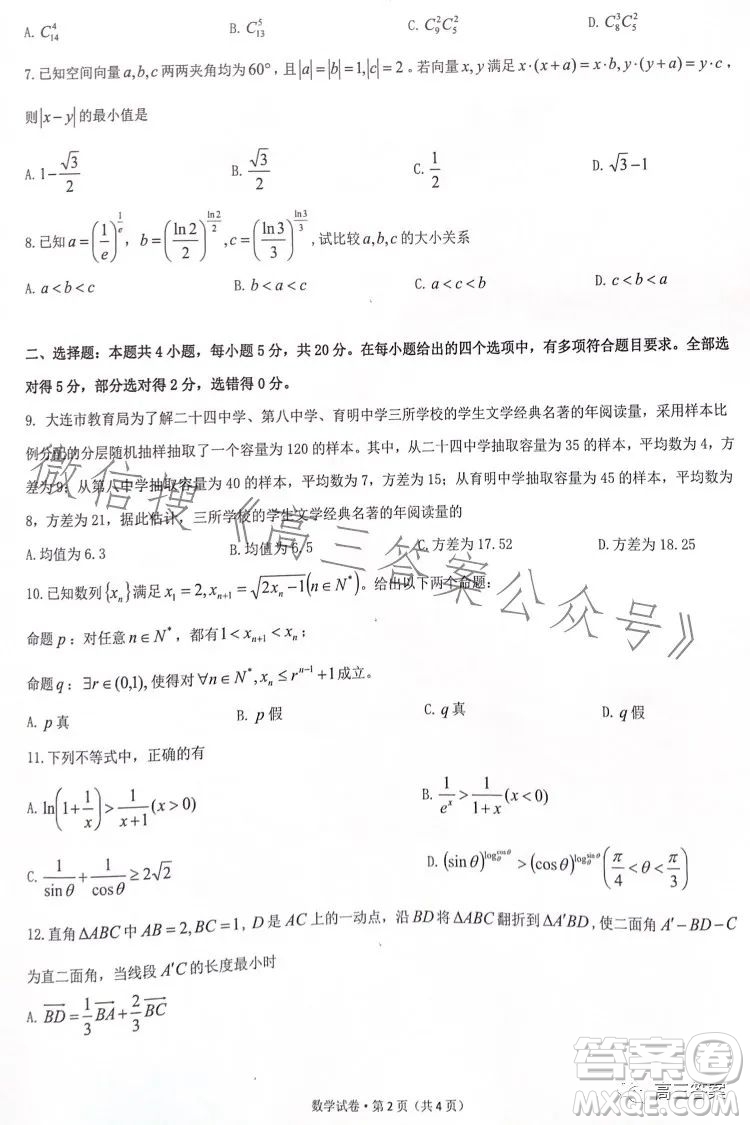 A. $C_{14}^{4}$ B. $C_{13}^{5}$ C. $C_{9}^{2}C_{5}^{2}$ D. $C_{8}^{3}C_{5}^{2}$
7.已知空间向量 $a,b,c$ 两两夹角均为 $60°$，且 $|a|=|b|=1,|c|=2$。若向量 $x,y$ 满足 $x\cdot(x+a)=x\cdot b,y\cdot(y+a)=y\cdot c$，
则 $|x-y|$ 的最小值是
A. $1-\frac{\sqrt{3}}{2}$ B. $\frac{\sqrt{3}}{2}$ C. $\frac{1}{2}$ D. $\sqrt{3}-1$
8.已知 $a=\left(\frac{1}{e}\right)^{\frac{1}{e}}$，$b=\left(\frac{\ln 2}{2}\right)^{\frac{\ln 2}{2}},c=\left(\frac{\ln 3}{3}\right)^{\frac{\ln 3}{3}}$,试比较 $a,b,c$ 的大小关系
A. $a<b<c$ B. $a<c<b$ C. $c<a<b$ D. $b<a<c$
二、选择题：本题共 4 小题，每小题 5 分，共 20 分。在每小题给出的四个选项中，有多项符合题目要求。全部选
对得 5 分，部分选对得 2 分，选错得 0 分。
9. 大连市教育局为了解二十四中学、第八中学、育明中学三所学校的学生文学经典名著的年阅读量，采用样本比
例分配的分层随机抽样抽取了一个容量为 120 的样本。其中，从二十四中学抽取容量为 35 的样本，平均数为 4，
方差为 9；从第八中学抽取容量为 40 的样本，平均数为 7，方差为 15；从育明中学抽取容量为 45 的样本，平均数为
8，方差为 21，据此估计，三所学校的学生文学经典名著的年阅读量的
A.均值为 6.3 B.均值为 6.5 C.方差为 17.52 D.方差为 18.25
10.已知数列 $\{x_n\}$ 满足 $x_1=2,x_{n+1}=\sqrt{2x_n-1}(n\in N^*)$。给出以下两个命题：
命题 $p$：对任意 $n\in N^*$，都有 $1<x_{n+1}<x_n$；
命题 $q$：$\exists r\in(0,1)$,使得对 $\forall n\in N^*,x_n\le r^{n-1}+1$ 成立。
A. $p$ 真 B. $p$ 假 C. $q$ 真 D. $q$ 假
11.下列不等式中，正确的有
A. $\ln\left(1+\frac{1}{x}\right)>\frac{1}{x+1}(x>0)$ B. $\frac{1}{e^x}>\frac{1}{1+x}(x<0)$
C. $\frac{1}{\sin\theta}+\frac{1}{\cos\theta}\ge 2\sqrt{2}$ D. $(\sin\theta)^{\log_{\theta}^{\cos\theta}}>(\cos\theta)^{\log_{\theta}^{\sin\theta}}\left(\frac{\pi}{4}<\theta<\frac{\pi}{3}\right)$
12.直角 $\Delta ABC$ 中 $AB=2,BC=1$，$D$ 是 $AC$ 上的一动点，沿 $BD$ 将 $\Delta ABC$ 翻折到 $\Delta A'BD$，使二面角 $A'-BD-C$
为直二面角，当线段 $A'C$ 的长度最小时
A. $\overrightarrow{BD}=\frac{1}{3}\overrightarrow{BA}+\frac{2}{3}\overrightarrow{BC}$
数学试卷·第 2 页（共 4 页）
微信搜《高三答案公众号》
答案卷
高三答案
MXQE.COM